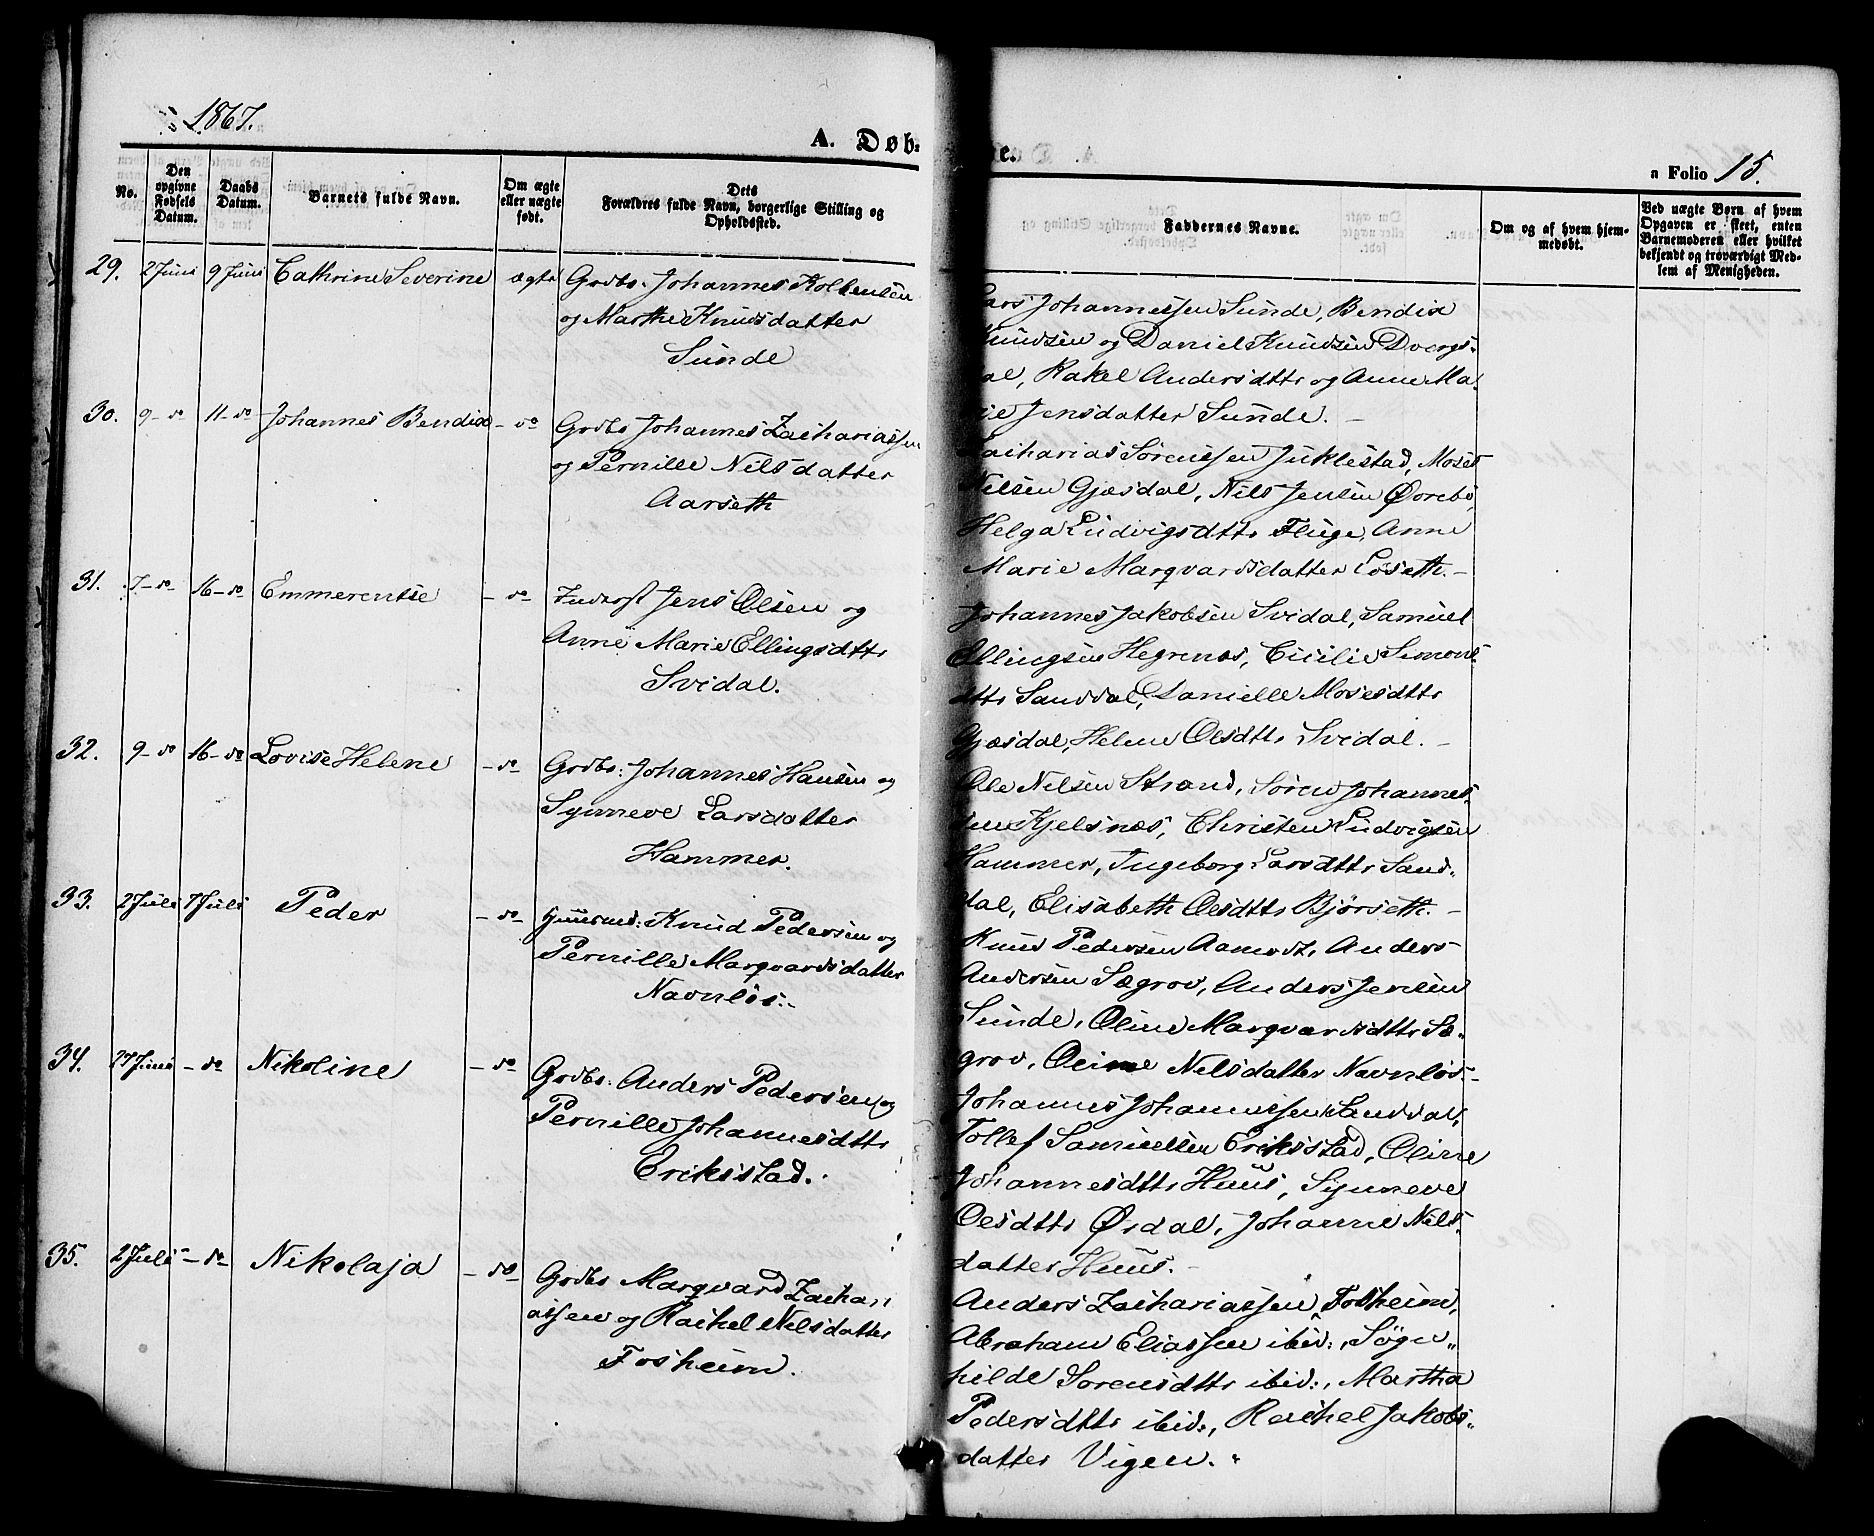 1867.
A. Døb-
te.
a Folio 15.
No.
Den opgivne Fødsels Datum.
Daabs Datum.
Barnets fulde Navn.
Om ægte eller uægte født.
Dets Forældres fulde Navn, borgerlige Stilling og Opholdssted.
Faddernes Navne.
Om og af hvem hjemmedøbt.
Ved uægte Børn af hvem Opgaven er skeet, enten Barnemoderen eller hvilket bekjendt og troværdigt Medlem af Menigheden.
29. 2 Juni 9 Juni Cathrine Severine ægte Grdbr. Johannes Kolbensen
og Marthe Knudsdatter
Sunde
Lars Johannessen Sunde, Bendix
Knudsen og Daniel Knudsen Dvergs-
dal, Rakel Andersdttr og Anne Ma-
rie Jensdatter Sunde. -
30. 9 - do 11 - do Johannes Bendix - do Grdbr Johannes Zachariassen
og Pernille Nilsdatter
Aarseth
Zacharias Sørenssen Juklestad, Moses
Nilsen Gjesdal, Nils Jensen Øvrebø,
Helga Ludvigsdttr Fluge, Anne
Marie Marqvardsdatter Løseth. -
31. 7 - do 16 - do Emmerentse - do Inderst Jens Olsen og
Anne Marie Ellingsdttr
Svidal.
Johannes Jakobsen Svidal, Samuel
Ellingsen Hegrenes, Cicilie Simons-
dttr Sanddal, Danielle Mosesdttr
Gjesdal, Helene Olsdttr Svidal. -
32. 9 - do 16 - do Lovise Helene - do Grdbr: Johannes Hansen og
Synneve Larsdatter
Hammer.
Ole Nilsen Strand, Søren Johannes-
sen Kjelsnæs, Christen Ludvigsen
Hammer, Ingeborg Larsdttr Sand-
dal, Elisabeth Olsdttr Bjørseth. -
33. 2 Juli 7 Juli Peder - do Huusmd: Knud Pedersen og
Pernille Marqvardsdatter
Navnløs. -
Knud Pedersen Aamodt, Anders
Andersen Sægrov, Anders Jensen
Sunde, Oline Marqvardsdttr Sæ-
grov, Oline Nilsdatter Navnløs. -
34. 27 Juni - do Nikoline - do Grdbr: Anders Pedersen og
Pernille Johannesdttr
Eriksstad.
Johannes Johannessen Sanddal,
Tollef Samuelsen Eriksstad, Oline
Johannesdttr Huus, Synneve
Olsdttr Ørdal, Johanne Nils-
datter Huus. -
35. 2 Juli - do Nikolaja - do Grdbr Marqvard Zachari
assen og Rachel Nilsdatter
Fosheim.
Anders Zachariassen Fosheim,
Abraham Eliassen ibid:, Søgn-
hilde Sørensdttr ibid:, Martha
Pedersdttr ibid:, Rachel Jakobs-
datter Vigen.